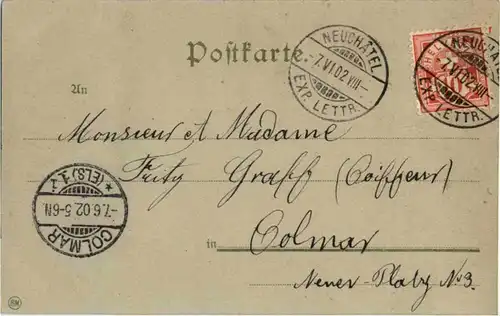 Postkarte.
NEUCHÂTEL
-7.VI.02.VIII-
EXP. LETTR.
NEUCHÂTEL
-7.VI.02.VIII-
EXP. LETTR.
HEL
10
An
Monsieur et Madame
Fritz Graff (Coiffeur)
in Colmar
Neuer-Platz No 3.
* (ELS.) 1. *
-7.6.02.5-6N.
COLMAR